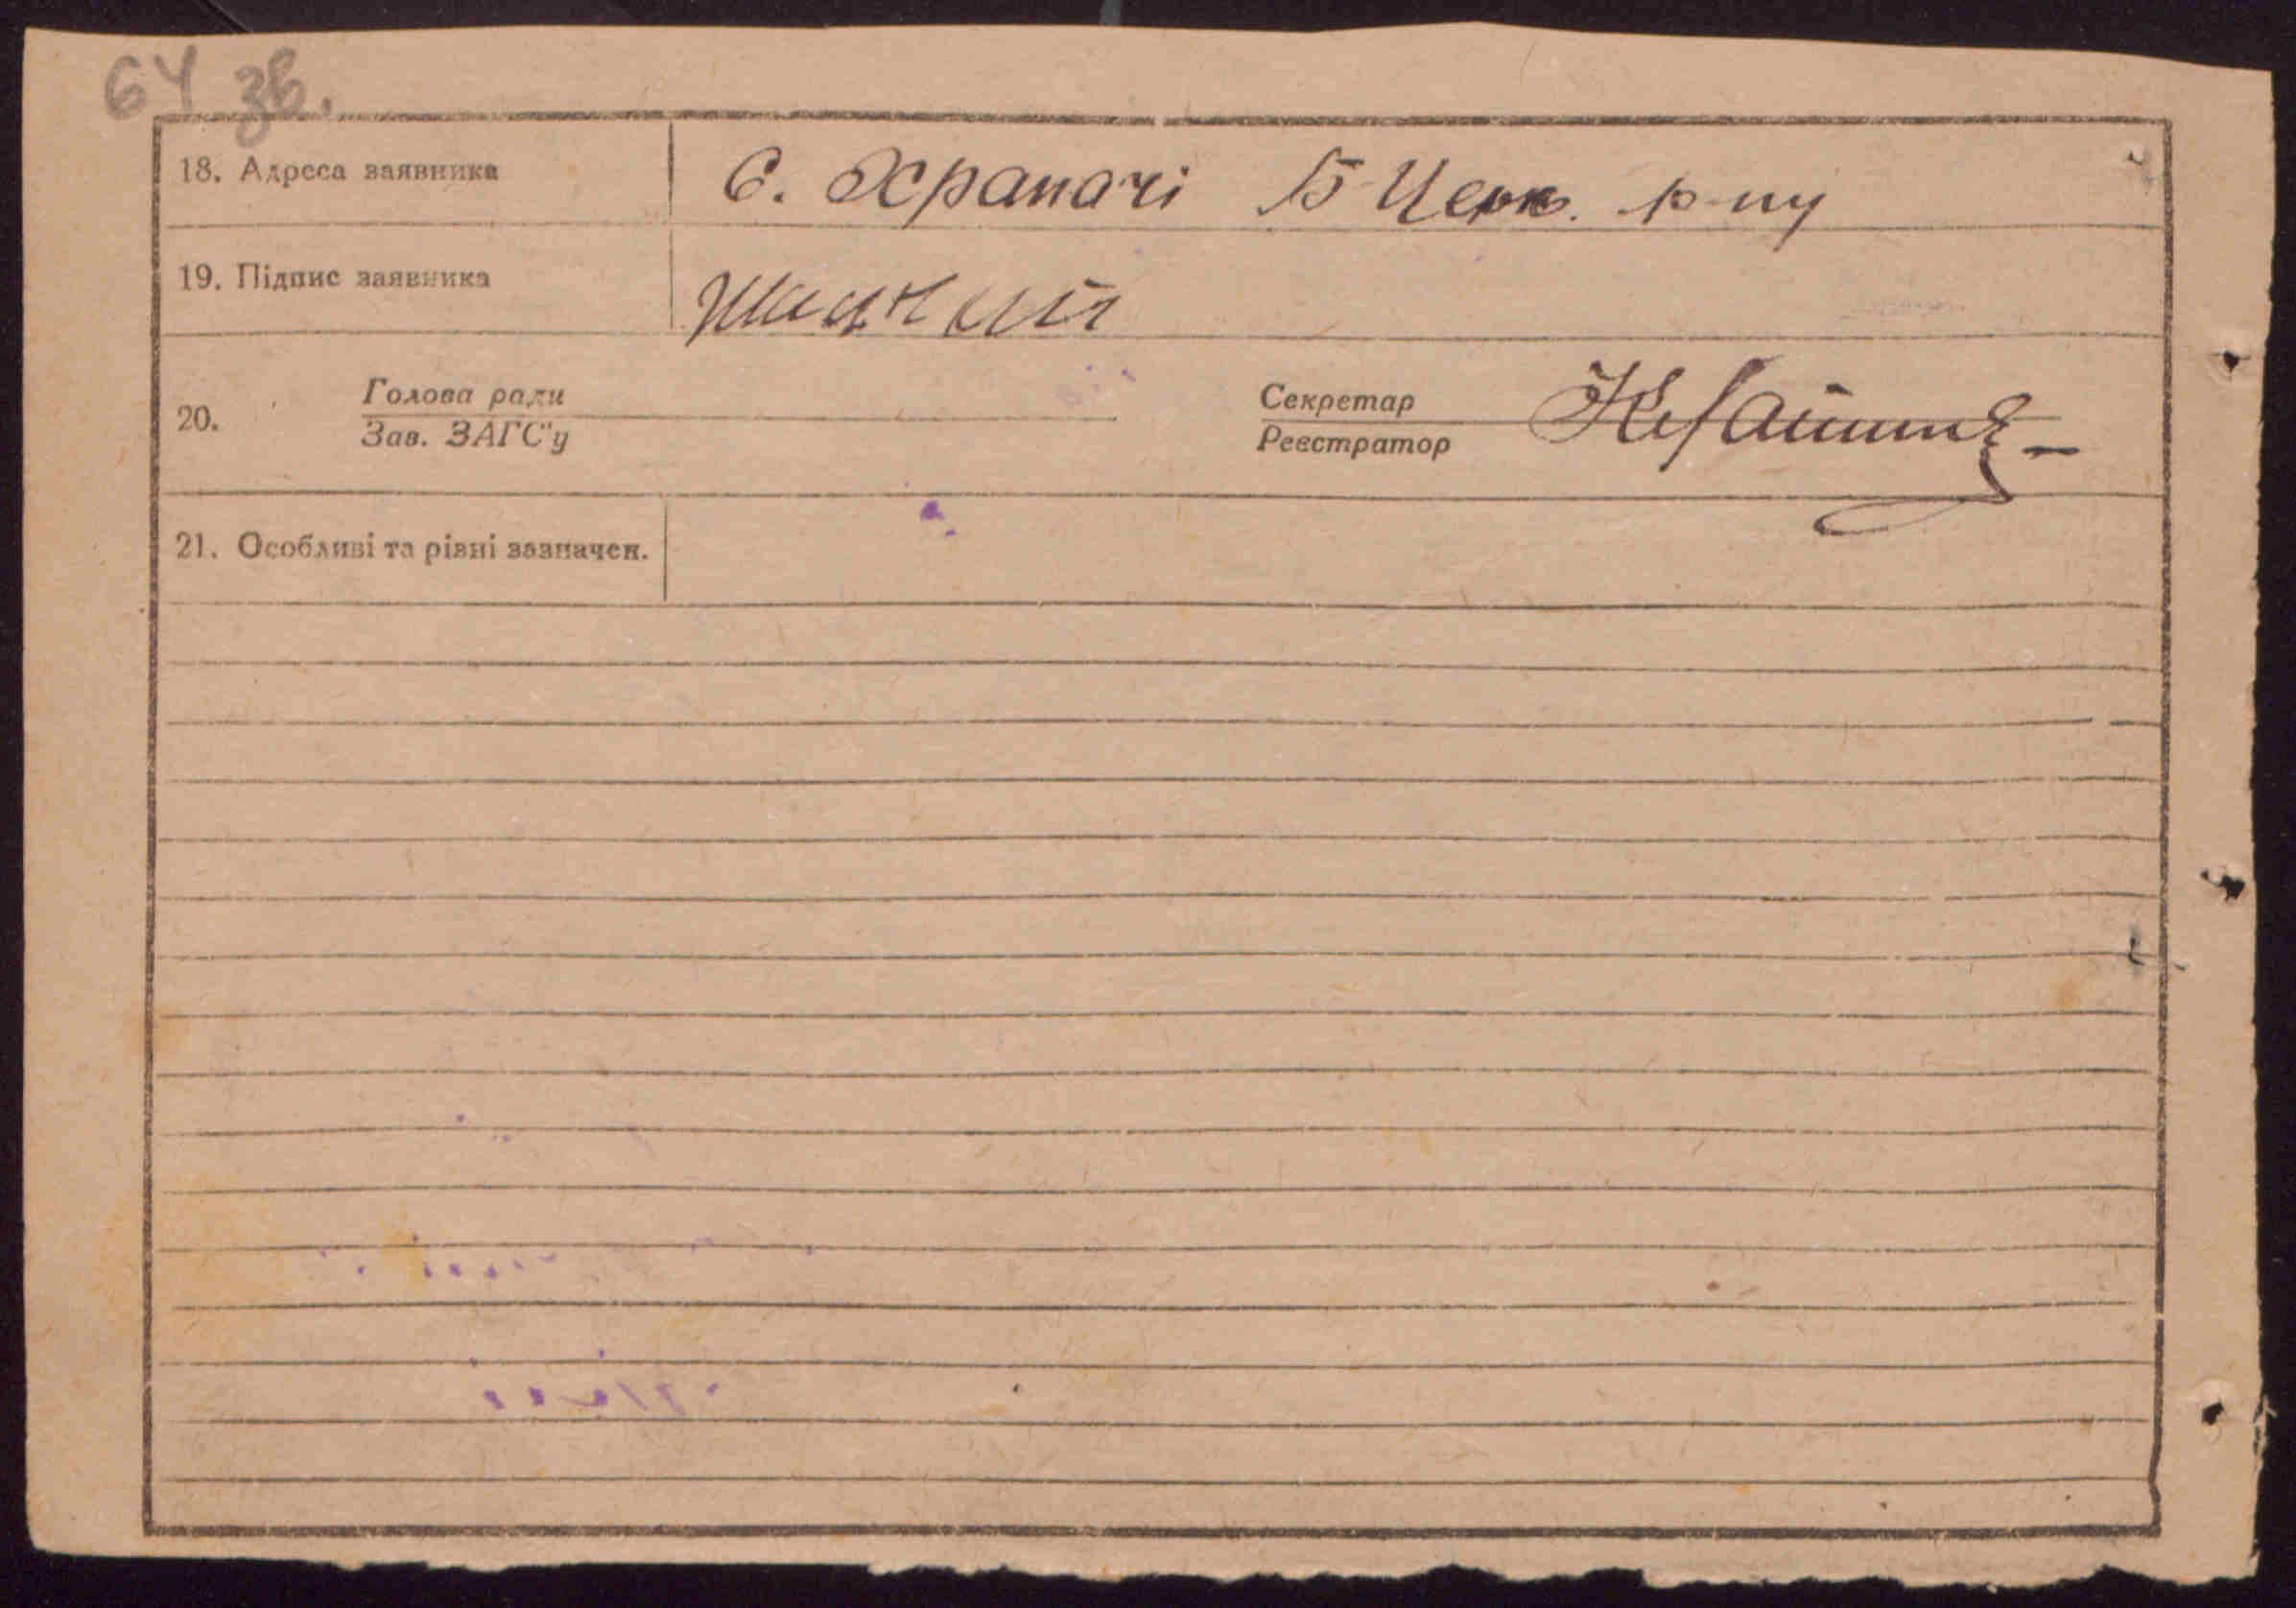 64 зв.
18. Адреса заявника С. Храпачі Б-Церк. р-ну
19. Підпис заявника
20. Голова ради Секретар
Зав. ЗАГС'у Реєстратор
21. Особливі та різні зазначен.